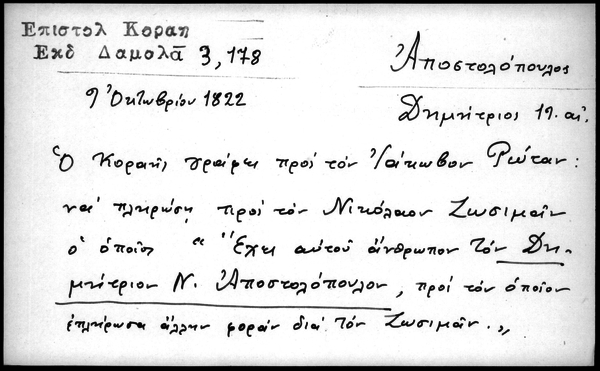 Επιστολ Κοραη
Εκδ Δαμολᾶ 3,178
Ἀποστολόπουλος
Δημήτριος 19. αἰ.
9 Ὀκτωβρίου 1822
Ὁ Κοραῆς γράφει πρὸς τὸν Ἰάκωβον Ρώταν:
νὰ πληρώσῃ πρὸς τὸν Νικόλαον Ζωσιμᾶν
ὁ ὁποῖος "Ἔχει αὐτοῦ ἄνθρωπον τὸν Δη-
μήτριον Ν. Ἀποστολόπουλον, πρὸς τὸν ὁποῖον
ἐπλήρωσα ἄλλην φορὰν διὰ τὸν Ζωσιμᾶν.„